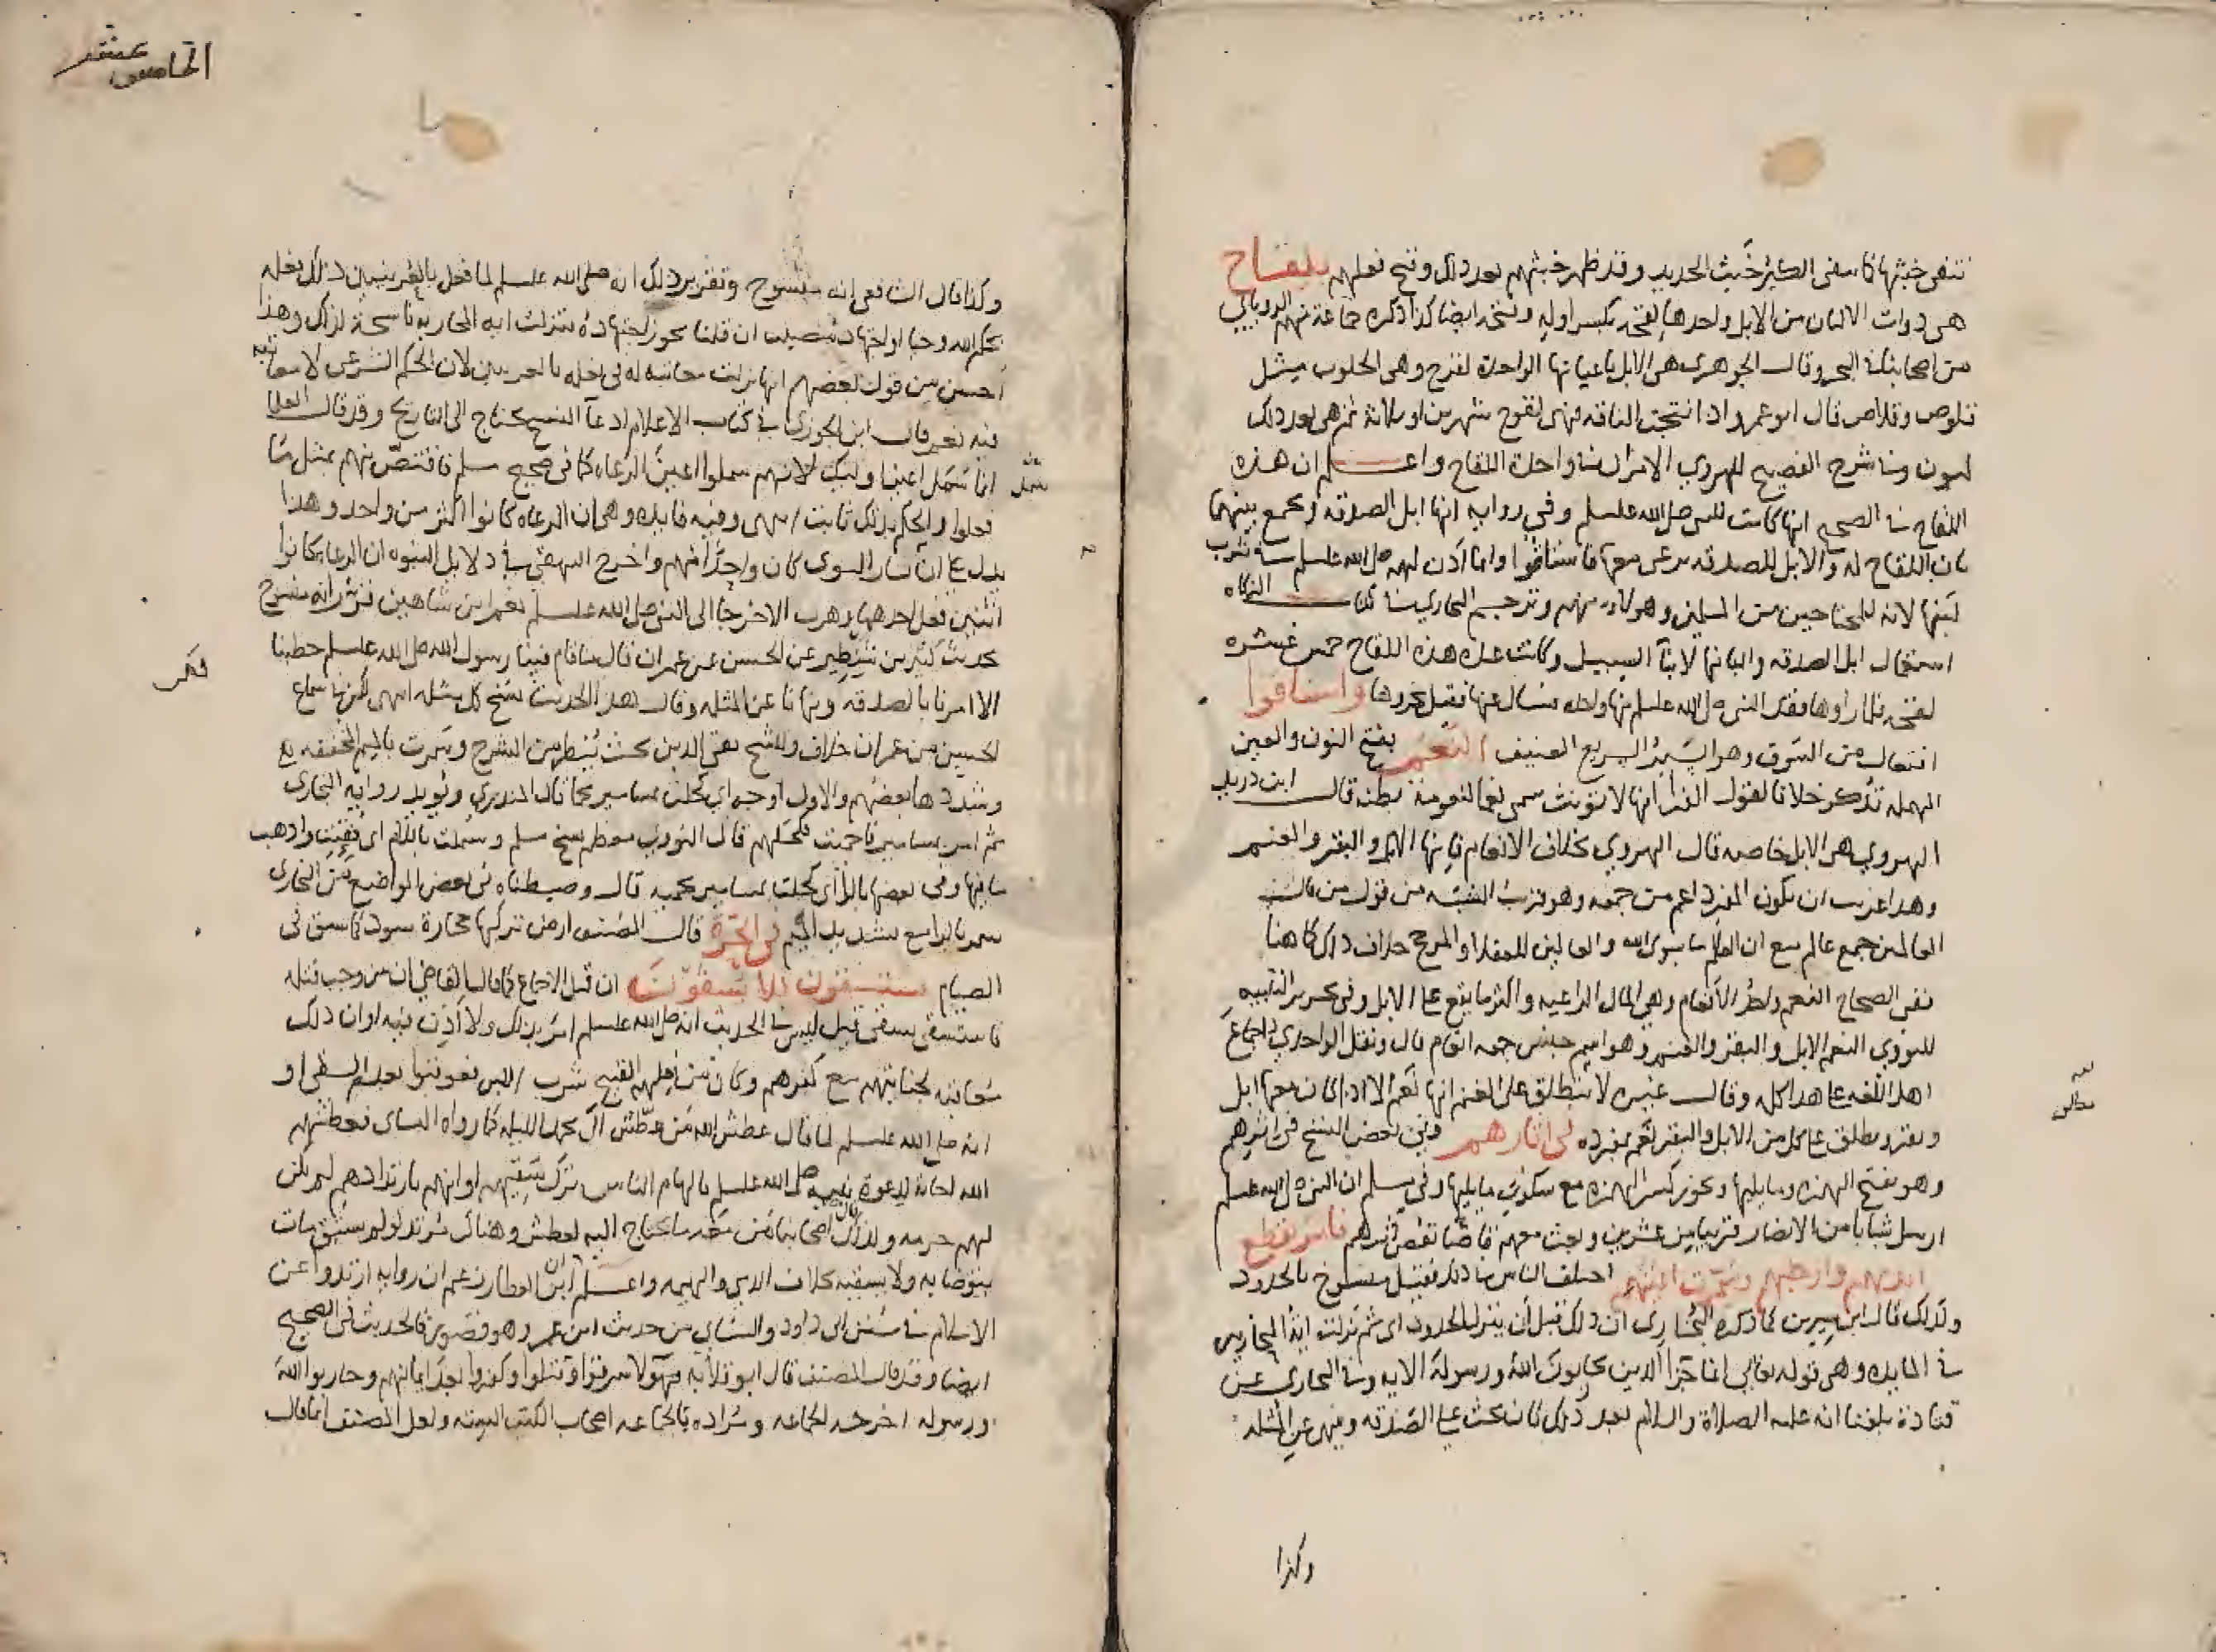 تنفي خبثها كما ينفي الكير خبث الحديد وقد ظهر خبثهم بعد ذلك وقبح فعلهم بلقاح
هي ذوات الالبان من الابل واحدها لقحة بكسر اوله وفتحه ايضا كذا ذكره جماعة منهم الروياني
من اصحابنا في البحر وقال الجوهري هي الابل باعيانها الواحدة لقوح وهي الحلوب مثل
قلوص وقلاص قال ابو عمرو اذا انتجت الناقة فهي لقوح شهرين او ثلاثة ثم هي بعد ذلك
لبون وفي شرح الفصيح للهروي واحدة اللقاح واعلم ان هذه
اللقاح في الصحيح انها كانت للنبي صلى الله عليه وسلم وفي رواية انها ابل الصدقة ويجمع بينهما
بان اللقاح له والابل للصدقة ترعى معها فاستاقوا وانما اذن لهم صلى الله عليه وسلم في شرب
لبنها لانه للمحتاجين من المسلمين وهؤلاء منهم وترجم البخاري في كتاب الزكاة
استعمال ابل الصدقة والبانها لابنآ السبيل وكانت عدة هذه اللقاح خمس عشرة
لقحة فقد النبي صلى الله عليه وسلم منها واحدة فسال عنها فقيل نحروها واستاقوا
افتعال من السوق وهو السير السريع العنيف النعم بفتح النون والعين
المهملة تذكر خلافا لقول الفرا انها لا تؤنث سمي نعما لنعومة بطنه قال ابن دريد
الهروي هي الابل خاصة قال الهروي بخلاف الانعام فانها الابل والبقر والغنم
وهذا غريب ان يكون المفرد اعم من جمعه وهو قريب الشبه من قول من قال
العالمين جمع عالم مع ان العالم ما سوى الله والعالمين للعقلا والمرجح خلاف ذلك كما هنا
ففي الصحاح النعم واحد الانعام وهي المال الراعية واكثر ما يقع على الابل وفي تحرير التنبيه
للنووي النعم الابل والبقر والغنم وهو اسم جنس جمعه انعام قال ونقل الواحدي اجماع
اهل اللغة على هذا كله وقال غيره لا ينطلق على الغنم انها نعم الا اذا كان معها ابل
وبقر ويطلق على كل من الابل والبقر نعم بمفرده في اثارهم وفي بعض النسخ في اثرهم
وهو بفتح الهمزة وما يليها ويجوز كسر الهمزة مع سكون ما يليها وفي مسلم ان النبي صلى الله عليه وسلم
ارسل شبابا من الانصار قريبا من عشرين وبعث معهم قائفا يقص اثرهم فامر بقطع
ايديهم وارجلهم وسمرت اعينهم اختلف الناس في ذلك فقيل منسوخ بالحدود
ولذلك قال ابن سيرين كما ذكره البخاري ان ذلك قبل أن ينزل الحدود اي ثم نزلت اية المحاربين
في المائدة وهي قوله تعالى انما جزآ الذين يحاربون الله ورسوله الاية وفي البخاري عن
قتادة بلغنا انه عليه الصلاة والسلام بعد ذلك كان يحث على الصدقة وينهى عن المثلة
وكذا
الخامس عشر
وكذا قال الشافعي انه منسوخ وتقرير ذلك انه صلى الله عليه وسلم لما فعل بالعرنيين ذلك فعله
بحكم الله وحيا او اجتهاد مصيب ان قلنا بجوز اجتهاده فنزلت اية المحاربة ناسخة لذلك وهذا
احسن من قول بعضهم انها نزلت معاتبة له في فعله بالعرنيين لان الحكم الشرعي لا معاتبة
فيه نعم قال ابن الجوزي في كتاب الاعلام ادعآ النسخ يحتاج الى التاريخ وقد قال العلما
انما سمل اعين اولئك لانهم سملوا اعين الرعاء كما في صحيح مسلم فاقتص منهم بمثل ما
فعلوا والحكم بذلك ثابت انتهى وفيه فايدة وهي ان الرعاء كانوا اكثر من واحد وهذا
يدل على ان كان واحدا منهم واخرج البيهقي في دلايل النبوة ان الرعاء كانوا
اثنين قتل احدهما وهرب الاخر جا الى النبي صلى الله عليه وسلم نعم ابن شاهين قرر انه منسوخ
بحديث كثير بن شنظير عن الحسن عن عمران قال ما قام فينا رسول الله صلى الله عليه وسلم خطيبا
الا امرنا بالصدقة ونهانا عن المثلة وقال هذا الحديث نسخ كل مثلة انتهى لكن في سماع
الحسن من عمران خلاف وللشيخ تقي الدين بحث ينظر من الشرح وسمرت بالميم المخففة
وشددها بعضهم والاول اوجه اي كحلن بمسامير كما قال المنذري ويؤيده رواية البخاري
ثم امر بمسامير فاحميت فكحلهم قال النووي معظم نسخ مسلم وسملت باللام اي فقئت واذهب
ما فيها وفي بعضها بالرا اي كحلت بمسامير محمية قال وضبطناه في بعض المواضع من البخاري
سمر بالرا مع تشديد الميم في الحرة قال المصنف ارض تركبها حجارة سود كما سبق في
الصيام يستسقون فلا يسقون ان قيل الاجماع كما قال القاضي ان من وجب قتله
فاستسقى يسقى قيل ليس في الحديث انه صلى الله عليه وسلم امر بذلك ولا اذن فيه او ان ذلك
معاقبة لجنايتهم مع كفرهم وكان من فعلهم القبيح شرب اللبن فعوقبوا بعدم السقي او
انه صلى الله عليه وسلم لما قال عطش الله من عطش آل محمد الليلة كما رواه النساى فعطشهم
الله اجابة لدعوة نبيه صلى الله عليه وسلم بالهام الناس ترك سقيهم او انهم بارتدادهم لم يكن
لهم حرمة ولذلك قال اصحابنا من معه ما يحتاج اليه لعطش وهناك مرتد لو لم يسق مات
يتوضا به ولا يسقيه بخلاف الذمي والبهيمة واعلم ان ابن العطار زعم ان رواية ارتدوا عن
الاسلام في سنن ابي داود والنساي من حديث ابن عمر وهو قصور فالحديث في الصحيح
ايضا وقد قال المصنف قال ابو قلابة فهؤلا سرقوا وقتلوا وكفروا بعد ايمانهم وحاربوا الله
ورسوله اخرجه الجماعة ومراده بالجماعة اصحاب الكتب الستة ولعل المصنف انما قال